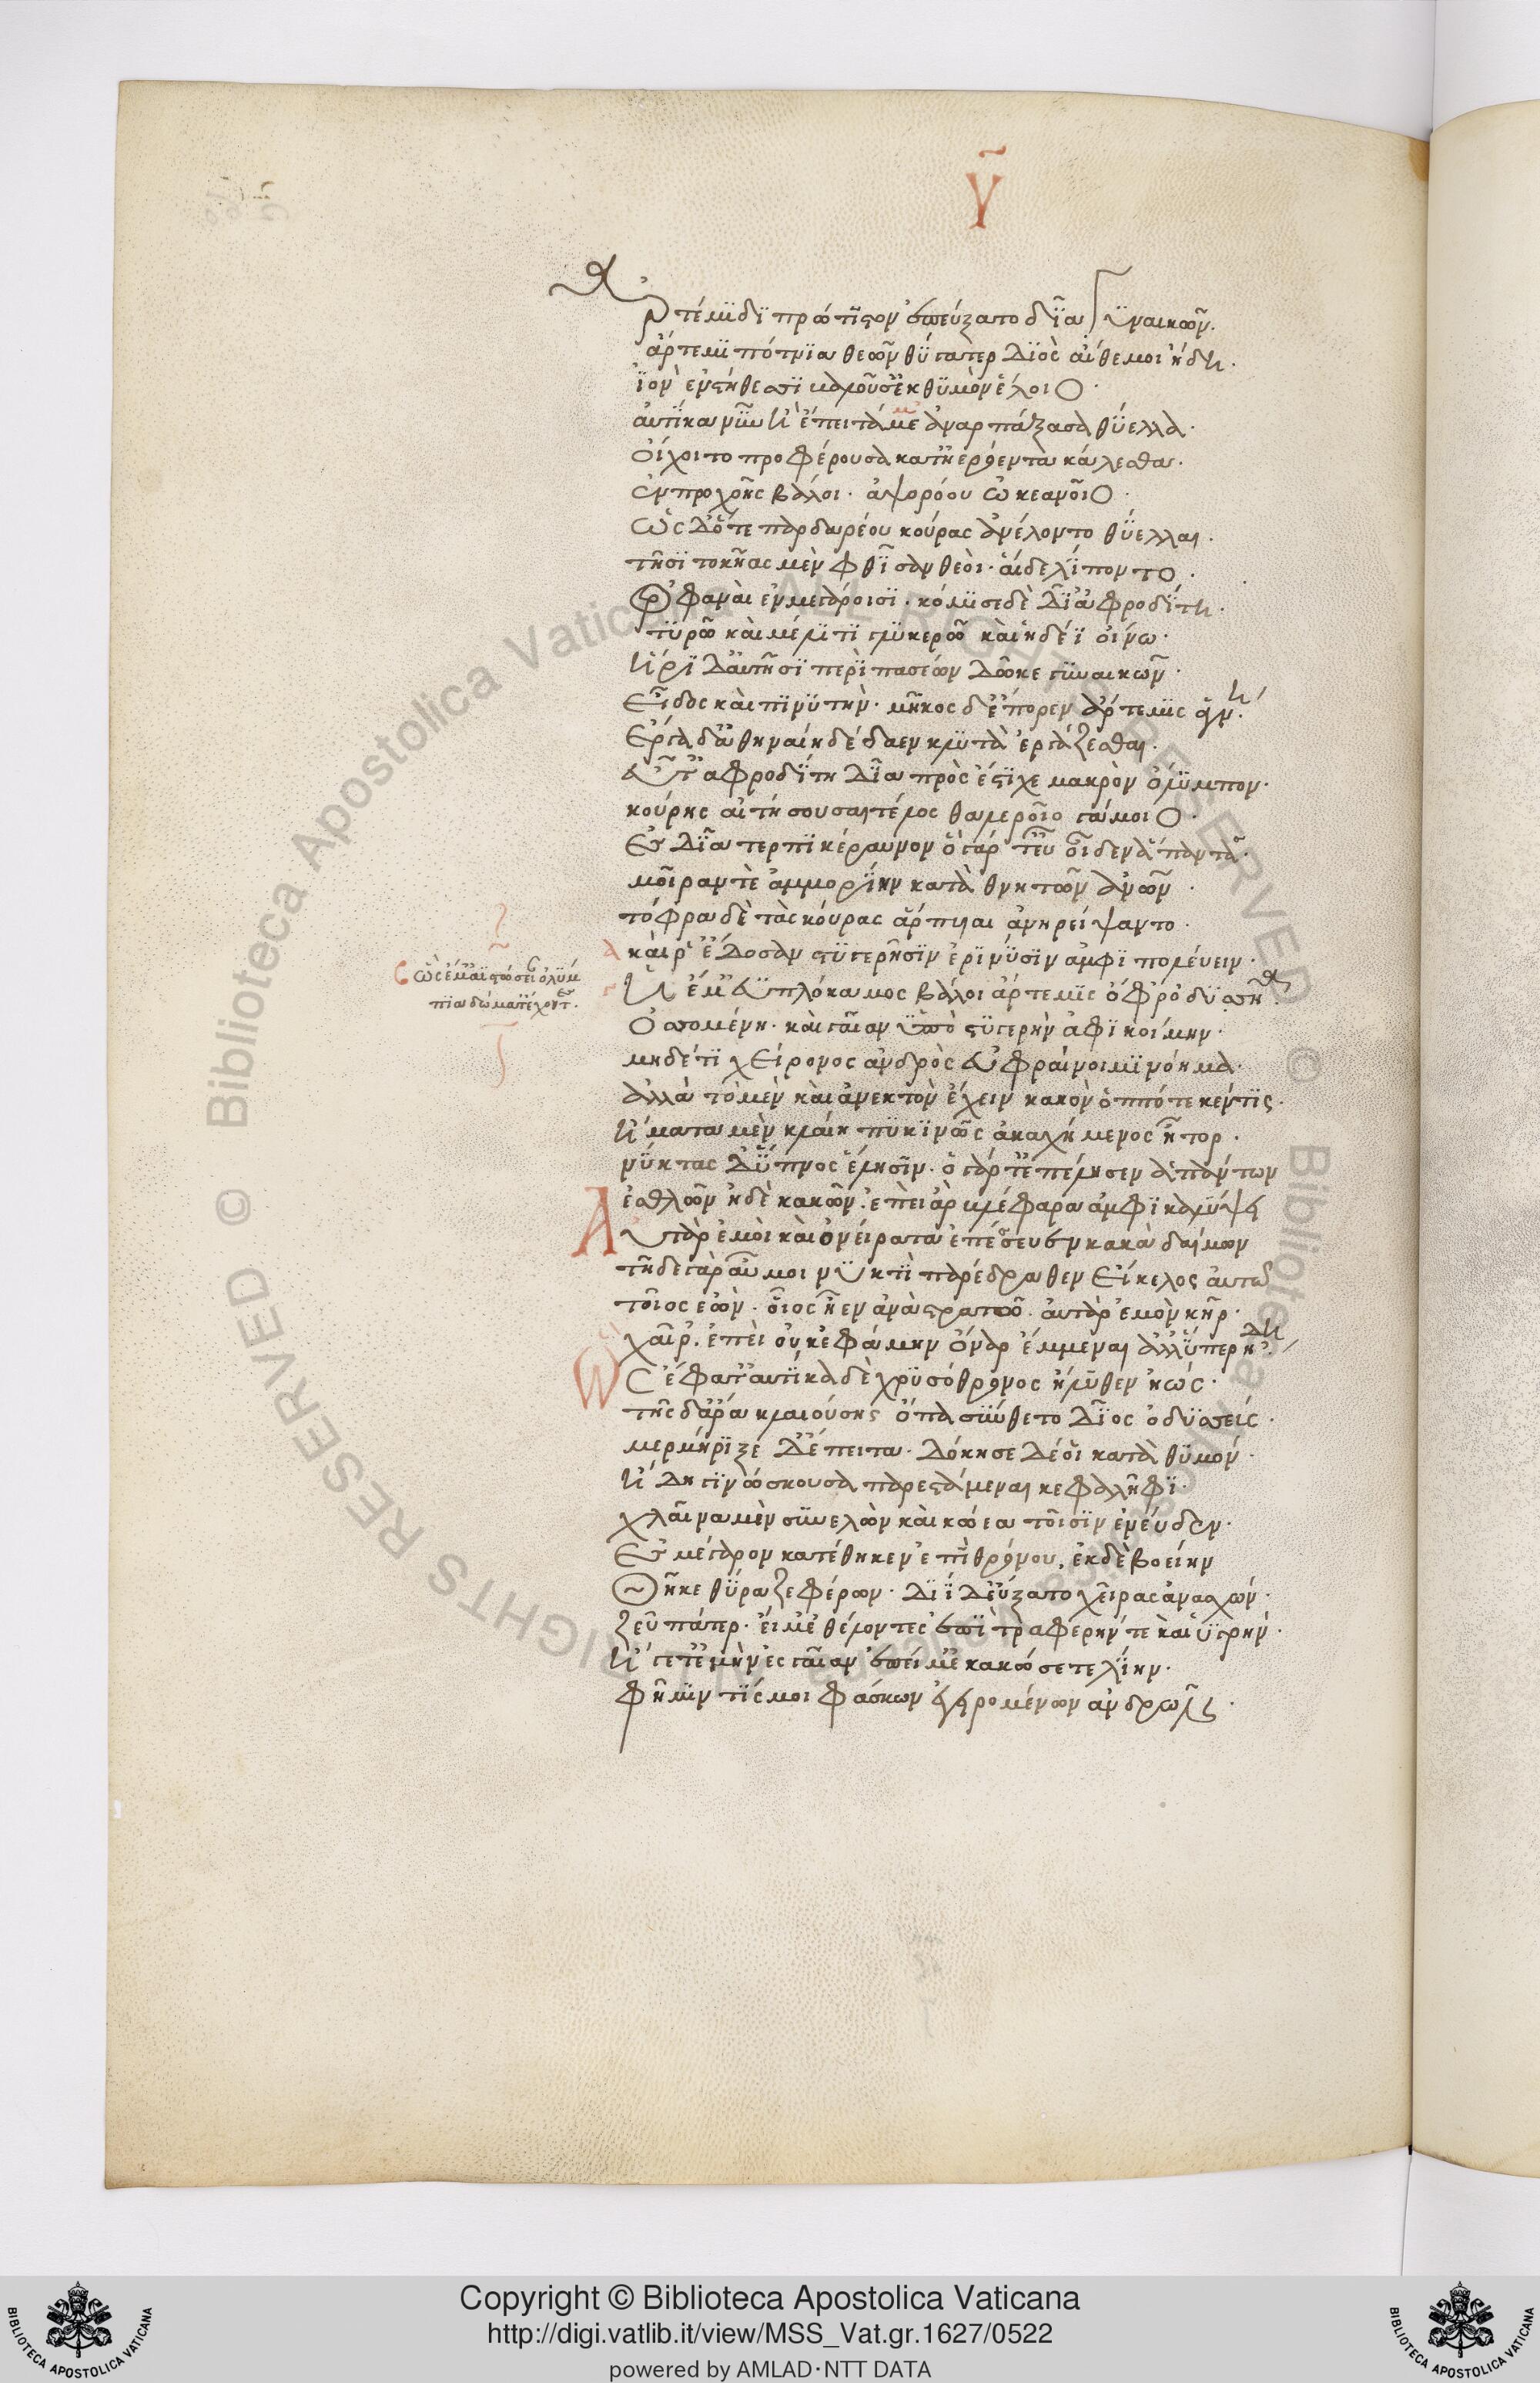 Υ
Ἀρτέμιδι πρώτιστον ἐπεύξατο δῖα γυναικῶν.
ἄρτεμι πότνια θεῶν θύγατερ Διὸς αἴθε μοι ἤδη.
ἰὸν ἐν στήθεσσι βαλοῦσ' ἐκ θυμὸν ἕλοιο.
αὐτίκα νῦν ἢ ἔπειτά με ἀναρπάξασα θύελλα.
οἴχοιτο προφέρουσα κατ' ἠερόεντα κάλευθα.
ἐν προχοῇς βάλοι. ἀψορρόου ὠκεανοῖο.
ὡς δ' ὅτε πανδαρέου κούρας ἀνέλοντο θύελλαι.
τῇσι τοκῆας μὲν φθῖσαν θεοὶ. αἱ δὲ λίποντο.
ὀρφαναὶ ἐν μεγάροισι. κόμισε δὲ δῖ' ἀφροδίτη.
τυρῷ καὶ μέλιτι γλυκερῷ καὶ ἡδέι οἴνῳ.
ἥρη δ' αὐτῇσι περὶ πασέων δῶκε γυναικῶν.
εἶδος καὶ πινυτήν. μῆκος δ' ἔπορεν ἄρτεμις ἁγνή.
ἔργα δ' ἀθηναίη δέδαεν κλυτὰ ἐργάζεσθαι.
εὖτ' ἀφροδίτη δῖα προσέστιχε μακρὸν ὄλυμπον.
κούρης αἰτήσουσα τέλος θαλεροῖο γάμοιο.
ἐς δία τερπικέραυνον ὃ γάρ τ' εὖ οἶδεν ἅπαντα.
μοῖράν τε ἀμμορίην κατὰ θνητῶν ἀνῶν.
τόφρα δὲ τὰς κούρας ἅρπυιαι ἀνηρείψαντο.
καί ῥ' ἔδοσαν στυγερῇσιν ἐρινύσιν ἀμφιπολεύειν.
ὡς ἔμ' ἀϊστώσειαν ὀλύμ
πια δώματ' ἔχοντες.
ἠ' ἔμ' ἐυπλόκαμος βάλοι ἄρτεμις ὄφρ' ὀδυσῆα
ὀσσομένη. καὶ γαῖαν ὑπὸ στυγερὴν ἀφικοίμην.
μηδέ τι χείρονος ἀνδρὸς εὐφραίνοιμι νόημα.
ἀλλὰ τὸ μὲν καὶ ἀνεκτὸν ἔχειν κακὸν ὁππότε κέν τις.
ἤματα μὲν κλαίῃ πυκινῶς ἀκαχήμενος ἦτορ.
νύκτας δ' ὕπνος ἔλησιν. ὃ γάρ τ' ἐπέλησεν ἁπάντων
ἐσθλῶν ἠδὲ κακῶν. ἐπεὶ ἂρ βλέφαρα ἀμφικαλύψῃ
Αὐτὰρ ἐμοὶ καὶ ὀνείρατα ἐπέσευσεν κακὰ δαίμων
τῇδε γὰρ αὖ μοι νυκτὶ παρέδραθεν εἴκελος αὐτῷ
τοῖος ἐὼν. οἷος ᾖεν ἅμα στρατῷ. αὐτὰρ ἐμὸν κῆρ.
χαῖρ'. ἐπεὶ οὐκ ἐφάμην ὄναρ ἔμμεναι ἀλλ' ὕπαρ ἤδη
Ὣς ἔφατ' αὐτίκα δὲ χρυσόθρονος ἤλυθεν ἠώς.
τῆς δ' ἄρα κλαιούσης ὄπα σύνθετο δῖος ὀδυσσεύς.
μερμήριξε δ' ἔπειτα. δόκησε δέ οἱ κατὰ θυμόν.
ἤδη γινώσκουσα παρεστάμεναι κεφαλῆφι.
χλαῖναν μὲν συνελὼν καὶ κώεα τοῖσιν ἐνεῦδεν.
ἐς μέγαρον κατέθηκεν ἐπὶ θρόνου, ἐκ δὲ βοείην
θῆκε θύραζε φέρων. διὶ δ' εὔξατο χεῖρας ἀνασχών.
ζεῦ πάτερ. εἴ μ' ἐθέλοντες ἐπὶ τραφερήν τε καὶ ὑγρήν.
ἤγετ' ἐμὴν ἐς γαῖαν ἐπεί μ' ἐκακώσετε λίην.
φήμην τίς μοι φάσκων ἐγειρομένων ἀνδρῶν
Copyright © Biblioteca Apostolica Vaticana
http://digi.vatlib.it/view/MSS_Vat.gr.1627/0522
powered by AMLAD·NTT DATA